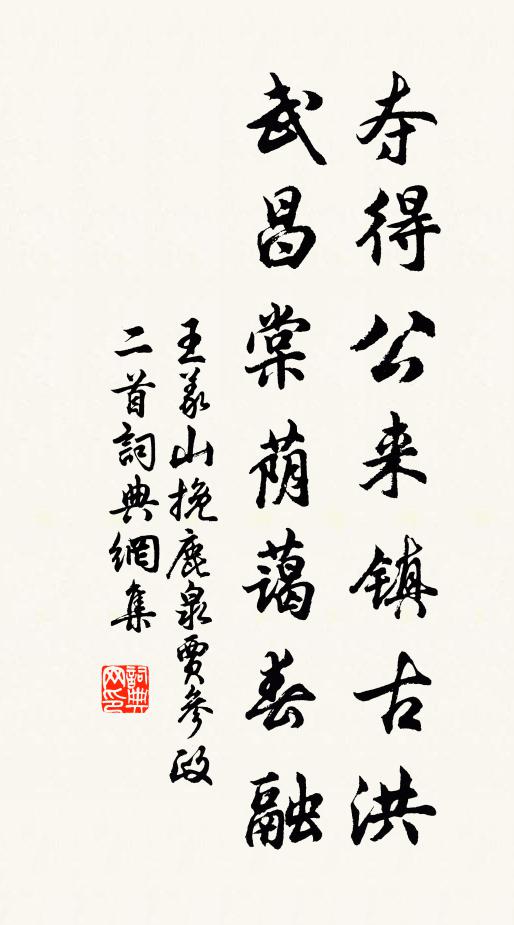 夺得公来镇古洪
武昌棠荫蔼春融
王义山挽鹿泉贾参政
二首詞典網集
詞典网印